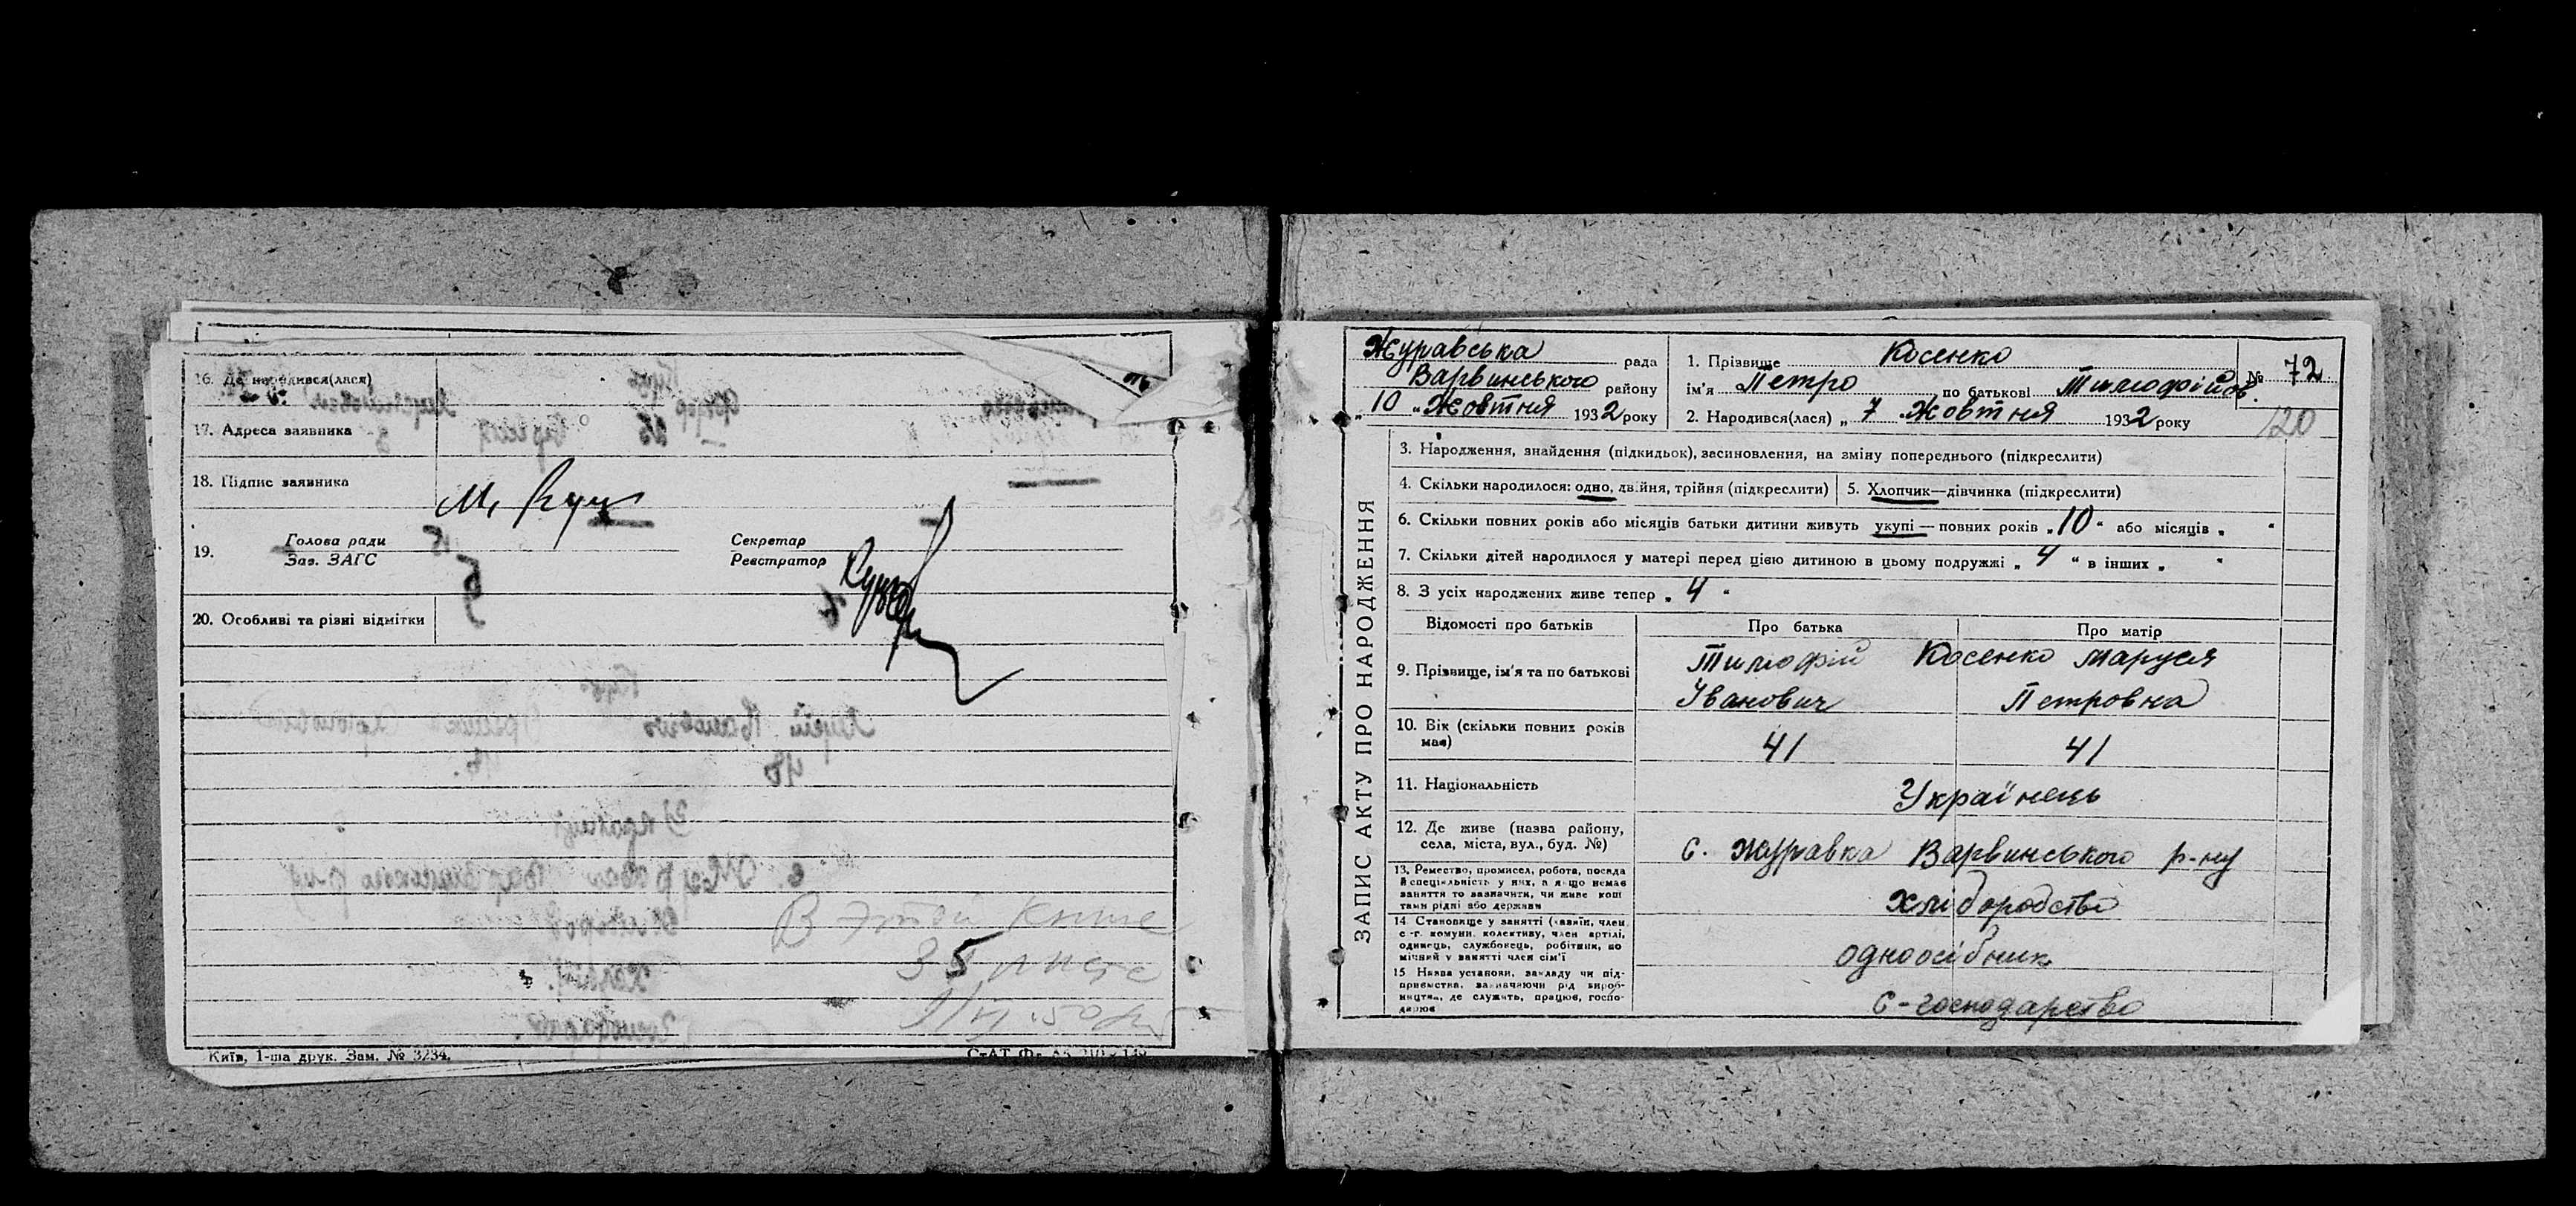 16. Де народився(лася)
17. Адреса заявника
18. Підпис заявника
М.
19. Голова ради
Зав. ЗАГС
Секретар
Реєстратор
20. Особливі та різні відмітки
В этой книге
35 листа
Київ, 1-ша друк. Зам. № 3234.
ЗАПИС АКТУ ПРО НАРОДЖЕННЯ
Журавська рада
Варвинського району
„10 „Жовтня 1932 року
1. Прізвище Косенко
ім'я Петро по батькові Тимофійов.
2. Народився(лася) „7 Жовтня 1932 року
№ 72
120
3. Народження, знайдення (підкидьок), засиновлення, на зміну попереднього (підкреслити)
4. Скільки народилося: одно, двійня, трійня (підкреслити)
5. Хлопчик—дівчинка (підкреслити)
6. Скільки повних років або місяців батьки дитини живуть укупі — повних років „10“ або місяців „ “
7. Скільки дітей народилося у матері перед цією дитиною в цьому подружжі „ 4 “ в інших „ “
8. З усіх народжених живе тепер „ 4 “
Відомості про батьків
Про батька
Про матір
9. Прізвище, ім'я та по батькові
Тимофій Косенко Маруся
Іванович Петровна
10. Вік (скільки повних років має)
41 41
11. Національність
Українець
12. Де живе (назва району,
села, міста, вул., буд. №)
с. Журавка Варвинського р-ну
13. Ремество, промисел, робота, посада
й спеціяльність у них, а якщо немає
заняття то зазначити, чи живе кош
тами рідні або держави
Хліборобство
14. Становище у занятті (хазяїн, член
с.-г. комуни, колективу, член артілі,
одинець, службовець, робітник, по
мічний у занятті член сім'ї
одноосібник
15 Назва установи, закладу чи під-
приємства, зазначаючи рід вироб-
ництва, де служить, працює, госпо-
дарює
С-господарство